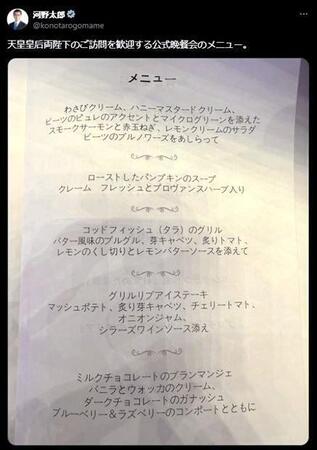 河野太郎
@konotarogomame
天皇皇后両陛下のご訪問を歓迎する公式晩餐会のメニュー。
メニュー
わさびクリーム、ハニーマスタードクリーム、
ビーツのピュレのアクセントとマイクログリーンを添えた
スモークサーモンと赤玉ねぎ、レモンクリームのサラダ
ビーツのブルノワーズをあしらって
ローストしたパンプキンのスープ
クレーム　フレッシュとプロヴァンスハーブ入り
コッドフィッシュ（タラ）のグリル
バター風味のブルグル、芽キャベツ、炙りトマト、
レモンのくし切りとレモンバターソースを添えて
グリルリブアイステーキ
マッシュポテト、炙り芽キャベツ、チェリートマト、
オニオンジャム、
シラーズワインソース添え
ミルクチョコレートのブランマンジェ
バニラとウォッカのクリーム、
ダークチョコレートのガナッシュ
ブルーベリー＆ラズベリーのコンポートとともに